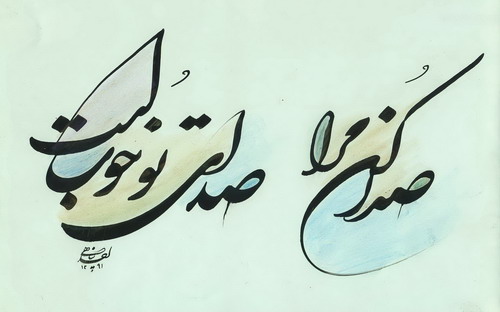 صدا کن مرا
صدای تو خوب است